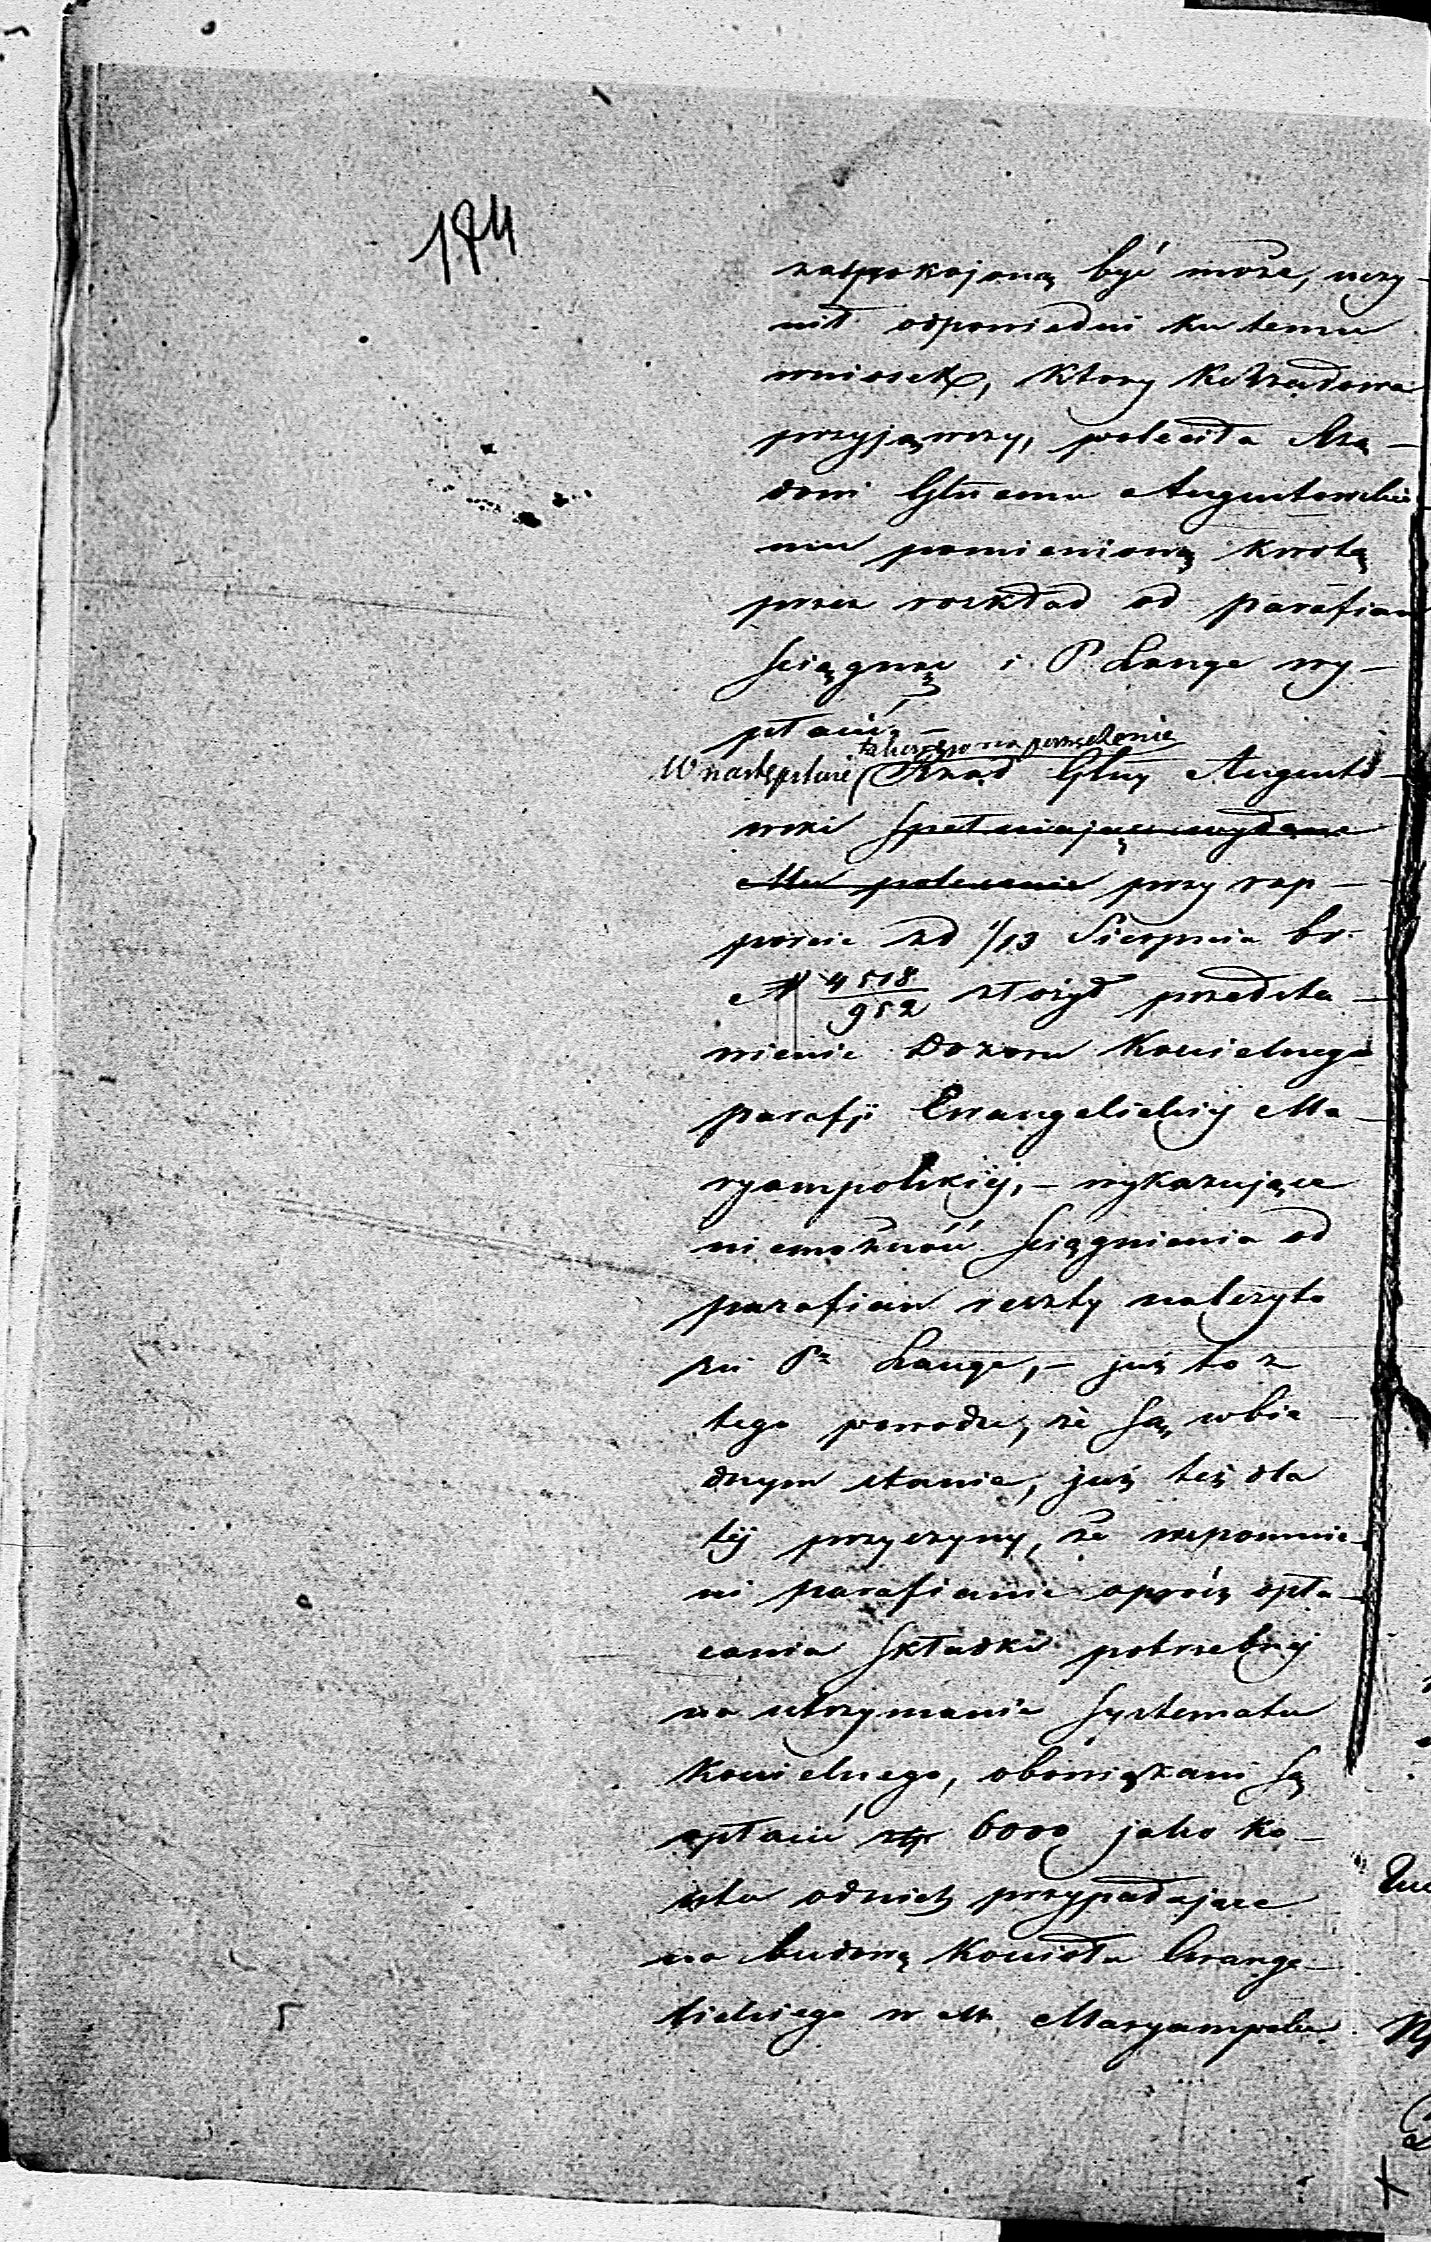 174
zaspokojoną być może, uczy-
nił odpowiedni ku temu
wniosek, który Ko Rządowa
przyjąwszy, poleciła Rzą-
dowi Głnemu Augustowskie-
mu pomienioną kwotę
przez rozkład od parafian
ściągnąć i P. Lange wy-
płacić. -
W następstwie Rząd Głny Augusto-
wski spełniając wydane
Mu polecenie przy rap-
porcie z d 1/13 Sierpnia br.
N 4518/952 złożył przedsta-
wienie Dozoru Kościelnego
parafji Ewangelickiéj Ma-
ryampolskiéj, - wykazujące
niemożność ściągnienia od
parafian reszty należyto
ści Pa Lange, - już to z
tego powodu, że są w bie-
dnym stanie, już też dla
téj przyczyny, że wspomnie-
ni parafianie oprócz opła-
cania składki potrzebnéj
na utrzymanie systematu
Kościelnego, obowiązani są
opłacić złp 6000 jako ko-
szta od nich przypadające
na budowę Kościoła Ewange-
lickiego w M. Maryampolu.